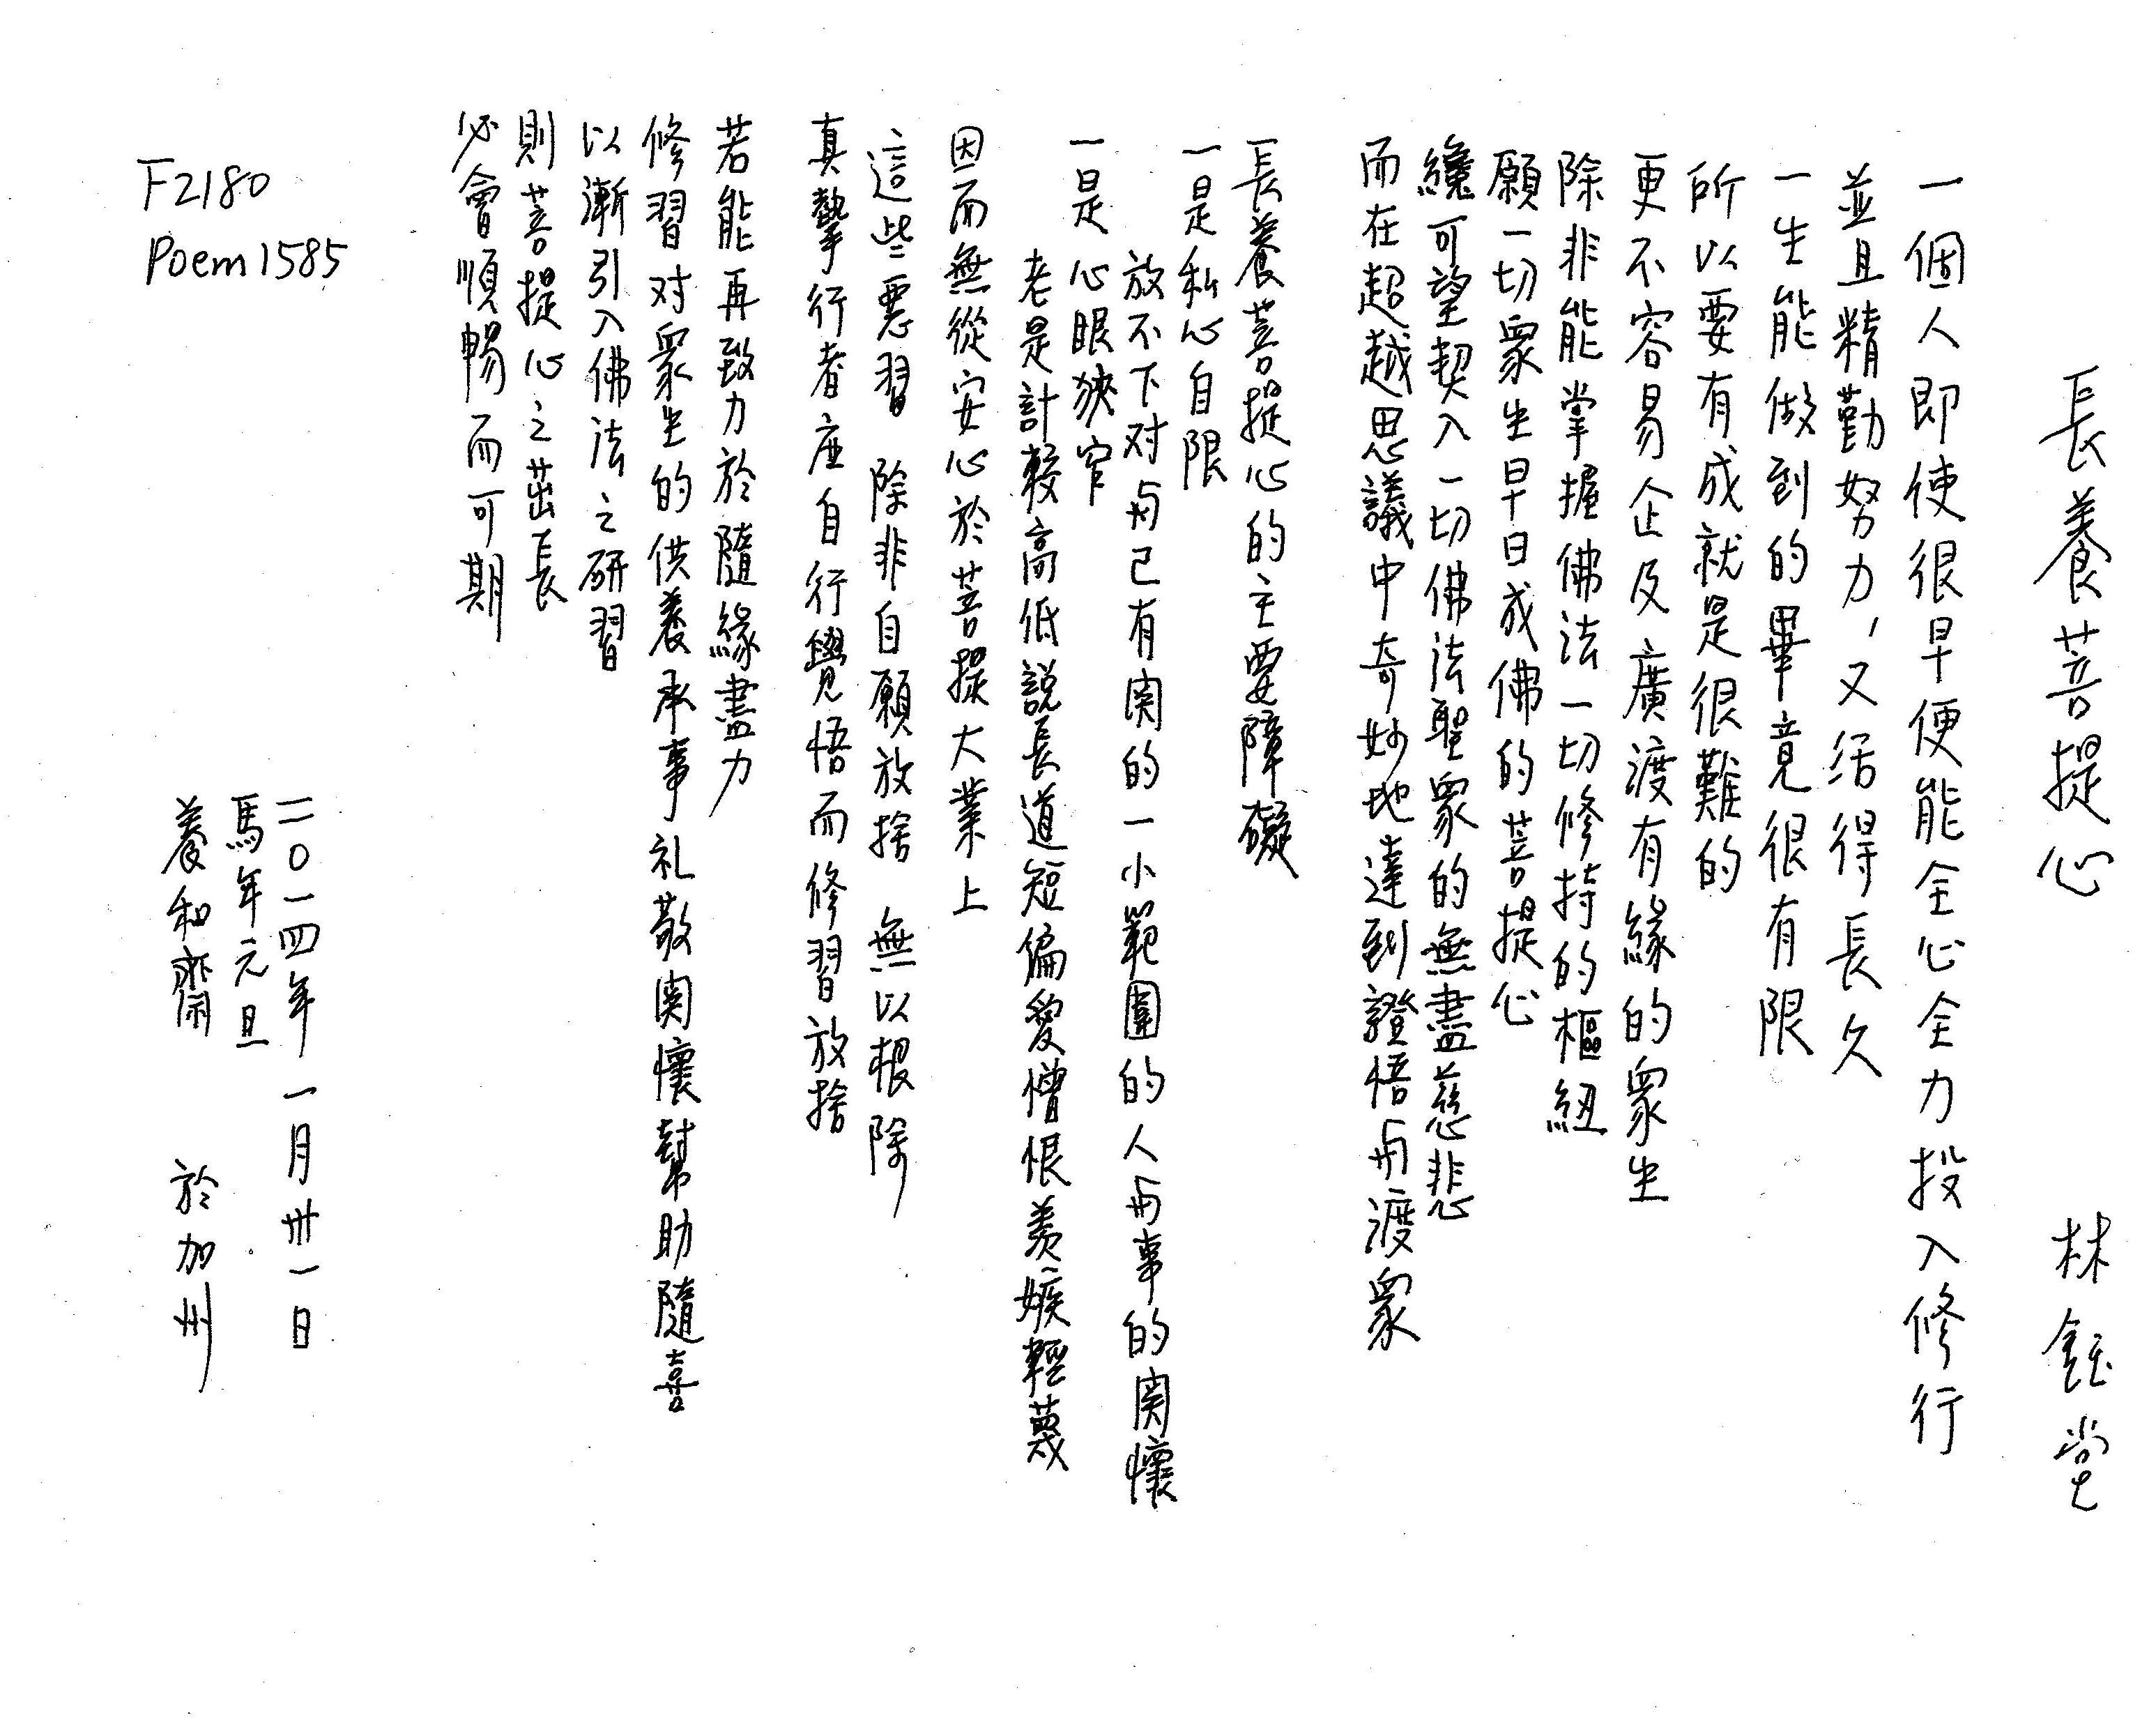 長養菩提心　　林鈺堂
一個人即使很早便能全心全力投入修行
並且精勤努力，又活得長久
一生能做到的畢竟很有限
所以要有成就是很難的
更不容易企及廣渡有緣的眾生
除非能掌握佛法一切修持的樞紐
願一切眾生早日成佛的菩提心
纔可望契入一切佛法聖眾的無盡慈悲
而在超越思議中奇妙地達到證悟与渡眾
長養菩提心的主要障礙
一是私心自限
放不下对与己有関的一小範圍的人与事的関懷
一是心眼狹窄
老是計較高低說長道短偏愛憎恨羨嫉輕蔑
因而無從安心於菩提大業上
這些惡習　除非自願放捨　無以根除
真摯行者应自行覺悟而修習放捨
若能再致力於隨緣盡力
修習对眾生的供養承事礼敬関懷幫助隨喜
以漸引入佛法之研習
則菩提心之茁長
必會順暢而可期
二〇一四年一月卅一日
馬年元旦
養和齋　於加州
F2180
Poem1585